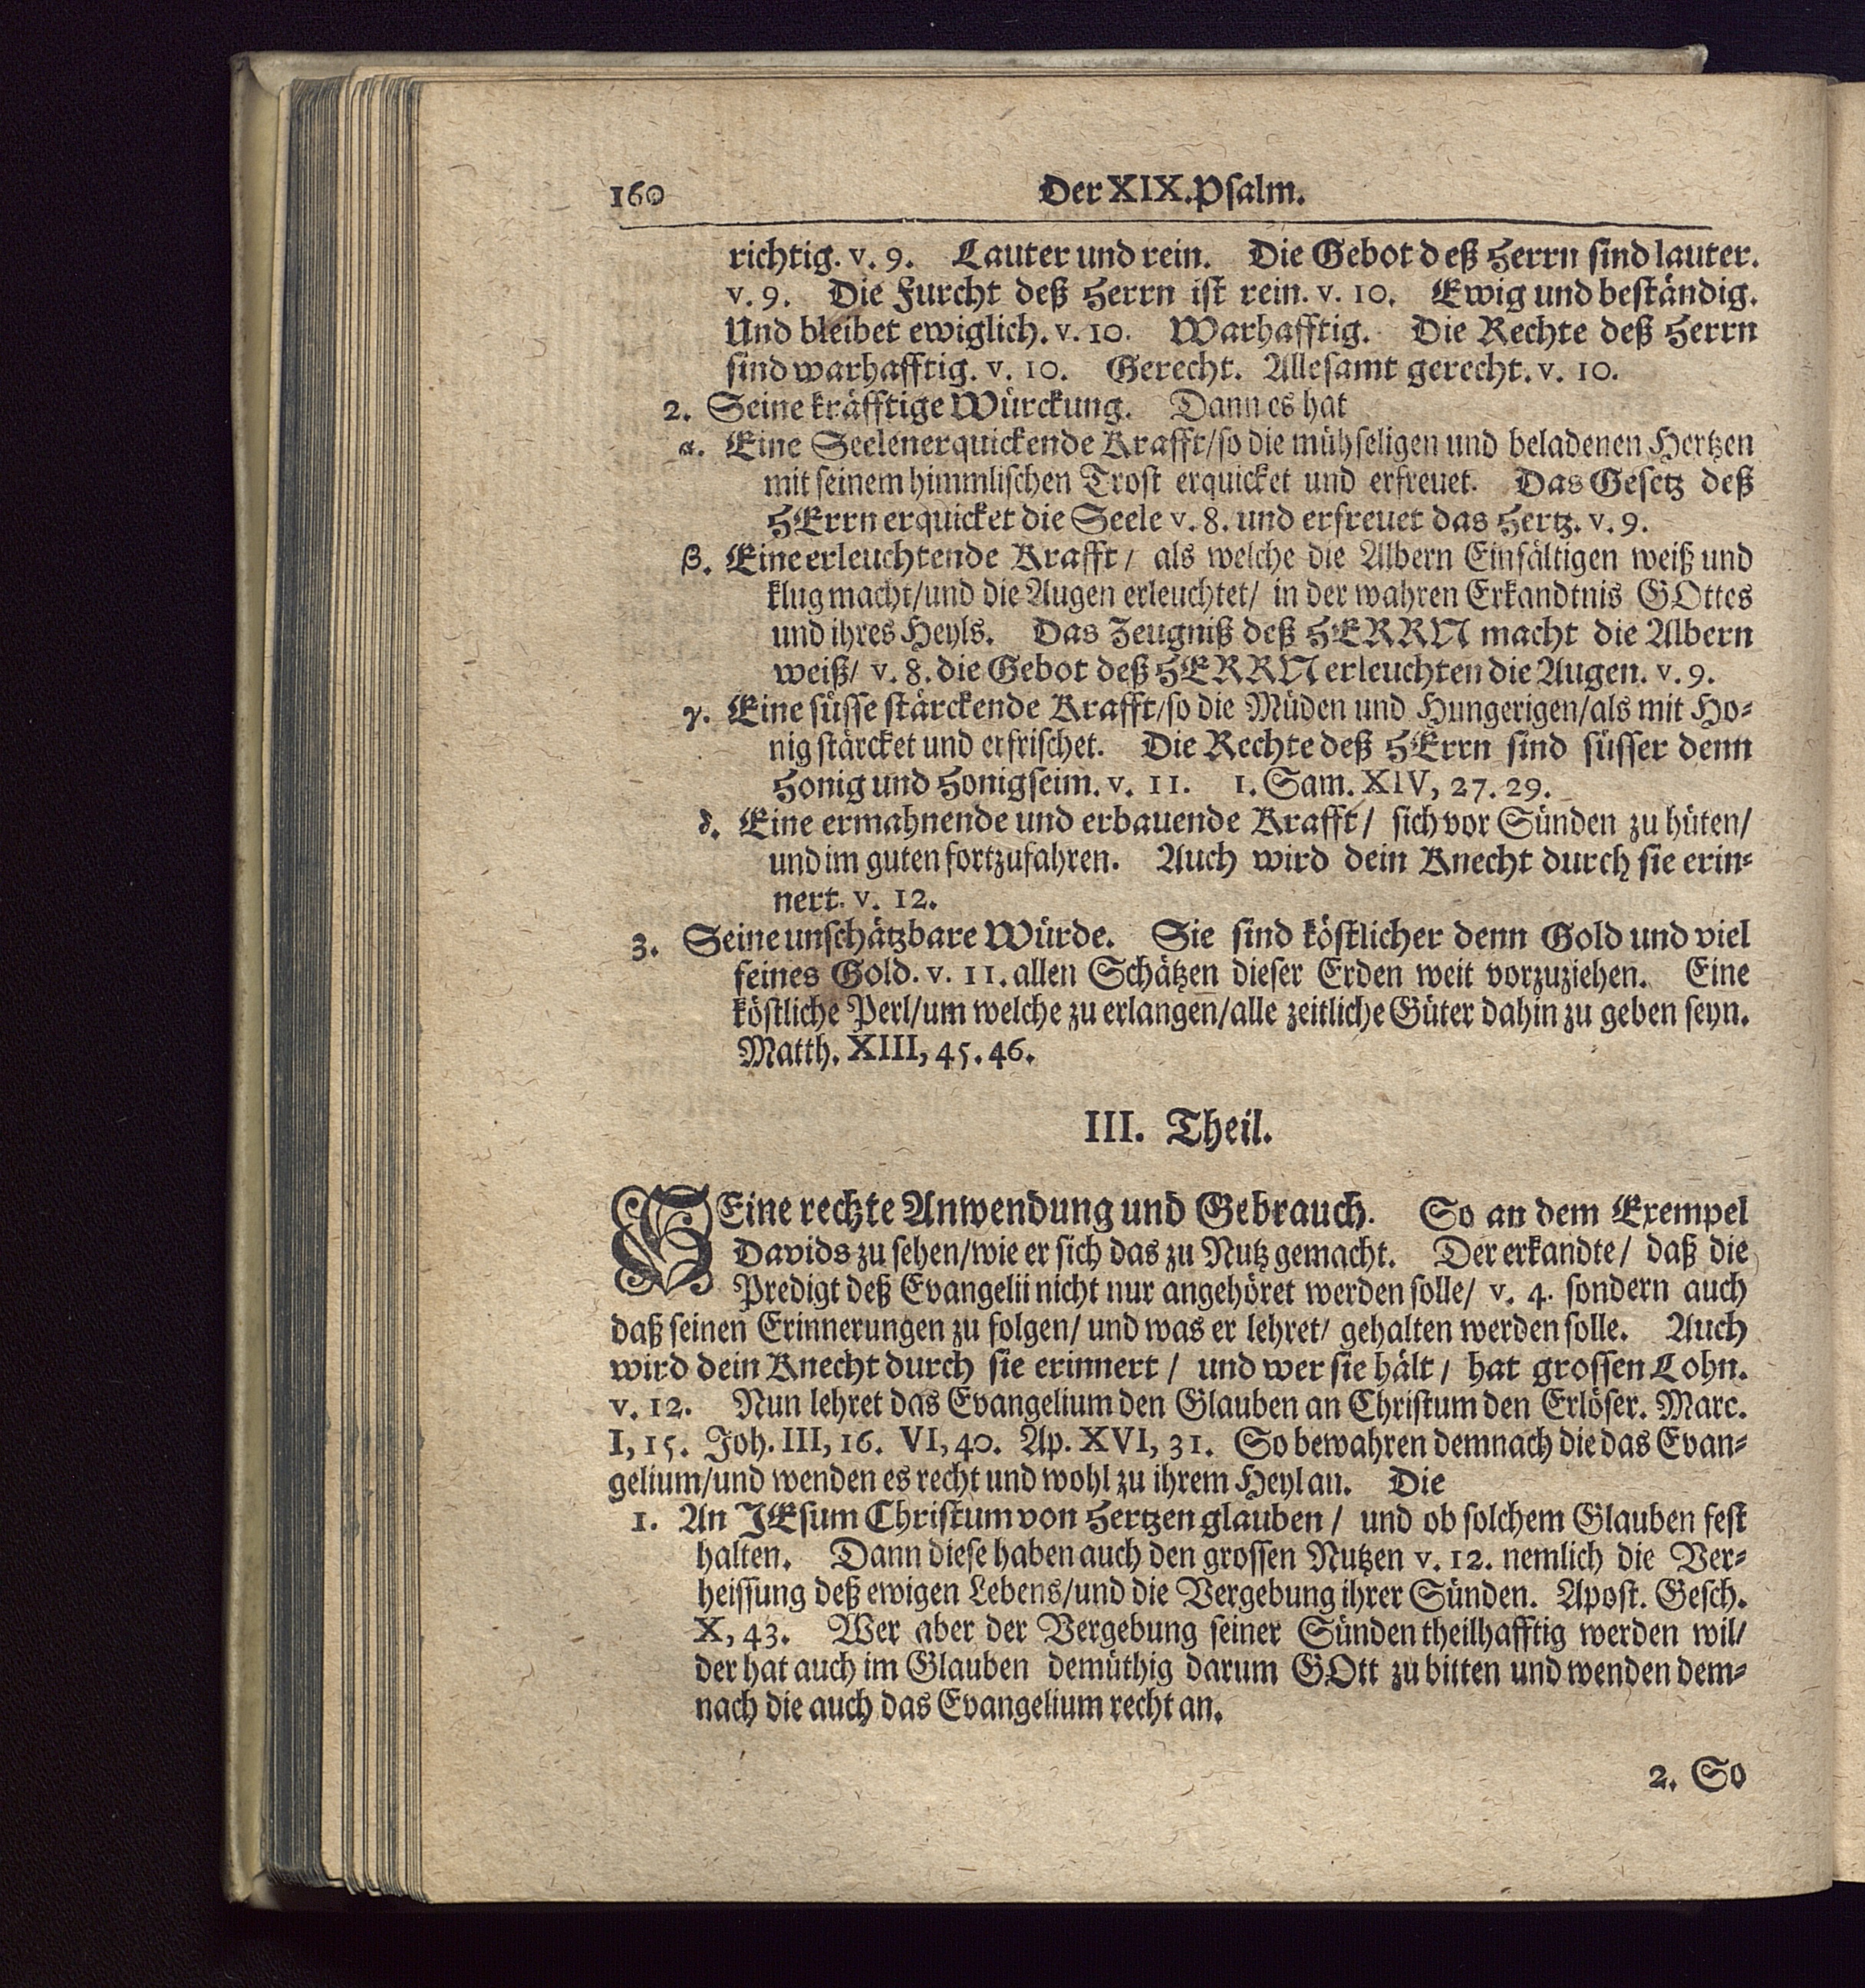 160
Der XIX. Psalm.
richtig. v. 9. Lauter und rein. Die Gebot deß Herrn sind lauter.
v. 9. Die Furcht deß Herrn ist rein. v. 10. Ewig und beständig.
Und bleibet ewiglich. v. 10. Warhafftig. Die Rechte deß Herrn
sind warhafftig. v. 10. Gerecht. Allesamt gerecht. v. 10.
2. Seine kräfftige Würckung. Dann es hat
α. Eine Seelenerquickende Krafft/ so die mühseligen und beladenen Hertzen
mit seinem himmlischen Trost erquicket und erfreuet. Das Gesetz deß
HErrn erquicket die Seele v. 8. und erfreuet das Hertz. v. 9.
β. Eine erleuchtende Krafft/ als welche die Albern Einfältigen weiß und
klug macht/ und die Augen erleuchtet/ in der wahren Erkandtnis GOttes
und ihres Heyls. Das Zeugniß deß HERRN macht die Albern
weiß/ v. 8. die Gebot deß HERRN erleuchten die Augen. v. 9.
γ. Eine süsse stärckende Krafft/ so die Müden und Hungerigen/ als mit Ho-
nig stärcket und erfrischet. Die Rechte deß HErrn sind süsser denn
Honig und Honigseim. v. 11. 1. Sam. XIV, 27. 29.
δ. Eine ermahnende und erbauende Krafft/ sich vor Sünden zu hüten/
und im guten fortzufahren. Auch wird dein Knecht durch sie erin-
nert. v. 12.
3. Seine unschätzbare Würde. Sie sind köstlicher denn Gold und viel
feines Gold. v. 11. allen Schätzen dieser Erden weit vorzuziehen. Eine
köstliche Perl/ um welche zu erlangen/ alle zeitliche Güter dahin zu geben seyn.
Matth. XIII, 45. 46.
III. Theil.
SEine rechte Anwendung und Gebrauch. So an dem Exempel
Davids zu sehen/ wie er sich das zu Nutz gemacht. Der erkandte/ daß die
Predigt deß Evangelii nicht nur angehöret werden solle/ v. 4. sondern auch
daß seinen Erinnerungen zu folgen/ und was er lehret/ gehalten werden solle. Auch
wird dein Knecht durch sie erinnert/ und wer sie hält/ hat grossen Lohn.
v. 12. Nun lehret das Evangelium den Glauben an Christum den Erlöser. Marc.
I, 15. Joh. III, 16. VI, 40. Ap. XVI, 31. So bewahren demnach die das Evan-
gelium/ und wenden es recht und wohl zu ihrem Heyl an. Die
1. An JEsum Christum von Hertzen glauben/ und ob solchem Glauben fest
halten. Dann diese haben auch den grossen Nutzen v. 12. nemlich die Ver-
heissung deß ewigen Lebens/ und die Vergebung ihrer Sünden. Apost. Gesch.
X, 43. Wer aber der Vergebung seiner Sünden theilhafftig werden wil/
der hat auch im Glauben demüthig darum GOtt zu bitten und wenden dem-
nach die auch das Evangelium recht an.
2. So